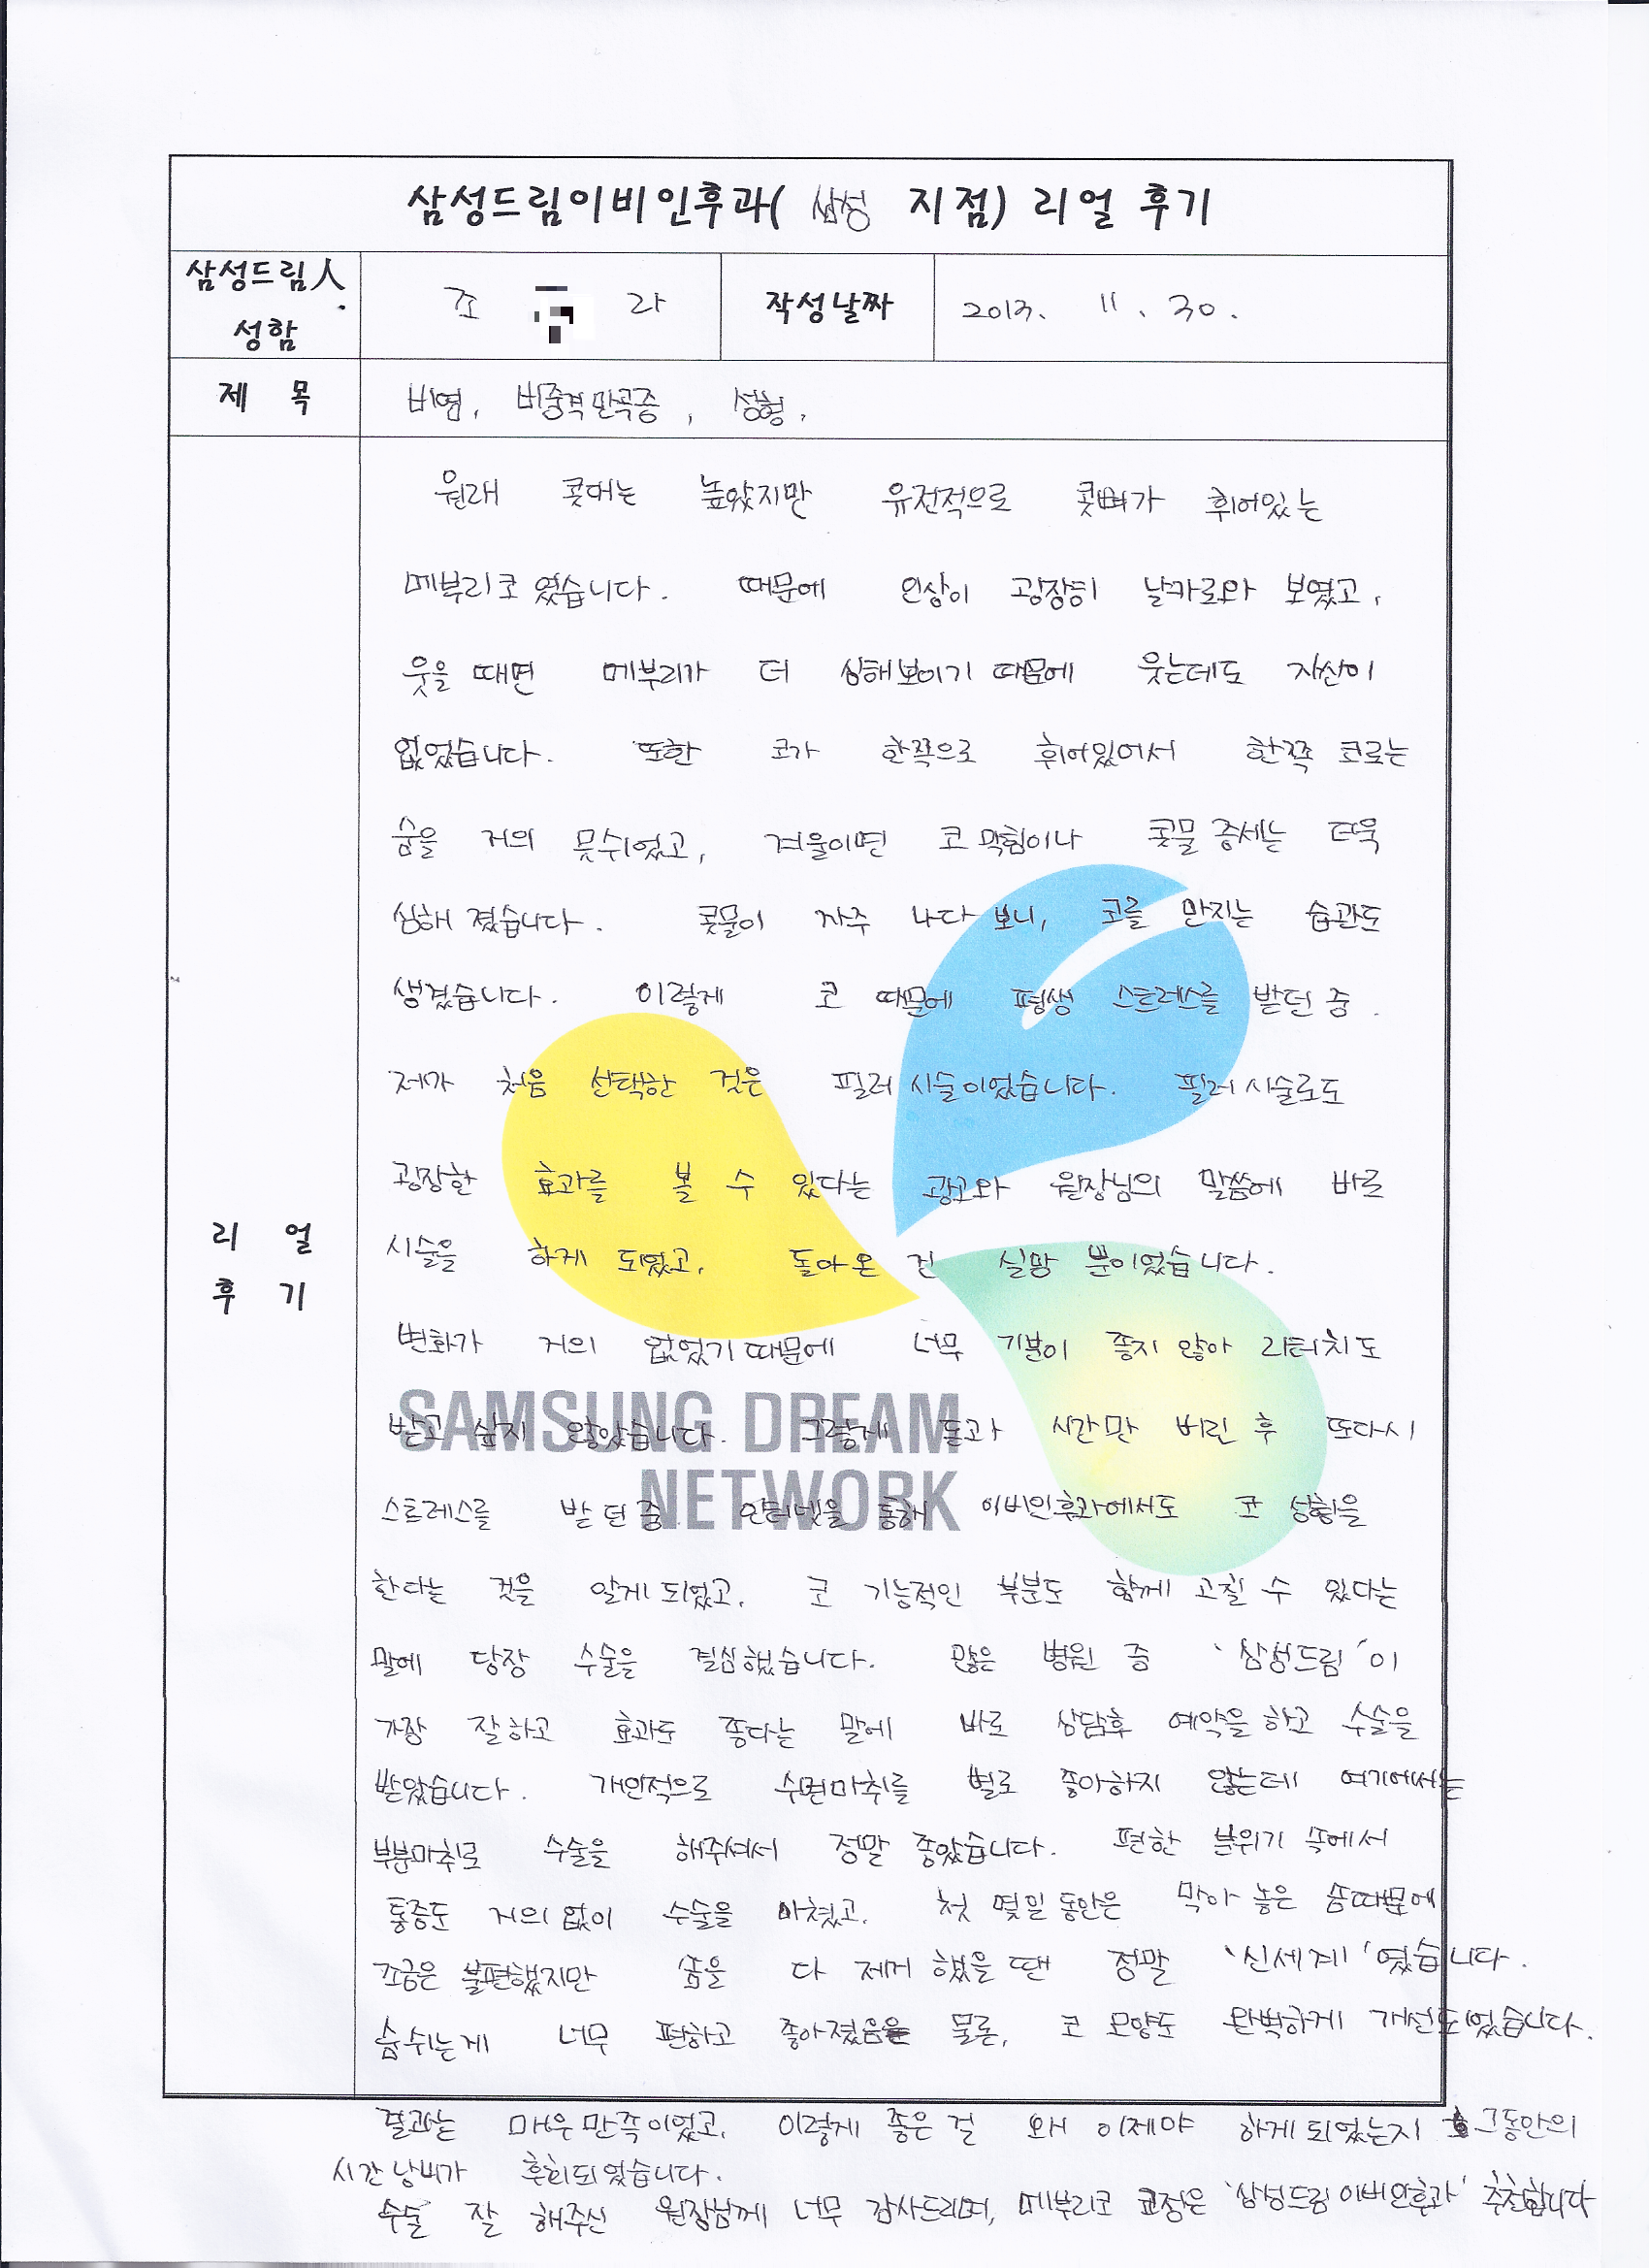 삼성드림이비인후과( 삼성 지점) 리얼 후기
삼성드림人 성함
조 라
작성날짜
2013. 11. 30.
제 목
비염, 비중격만곡증, 성형.
리 얼 후 기
원래 콧대는 높았지만 유전적으로 콧뼈가 휘어있는
메부리코였습니다. 때문에 인상이 굉장히 날카로와 보였고,
웃을 때면 메부리가 더 심해보이기 때문에 웃는데도 자신이
없었습니다. 또한 코가 한쪽으로 휘어있어서 한쪽 코로는
숨을 거의 못쉬었고, 겨울이면 코막힘이나 콧물 증세는 더욱
심해졌습니다. 콧물이 자주 나다 보니, 코를 만지는 습관도
생겼습니다. 이렇게 코 때문에 평생 스트레스를 받던 중
제가 처음 선택한 것은 필러시술이었습니다. 필러시술로도
굉장한 효과를 볼 수 있다는 광고와 원장님의 말씀에 바로
시술을 하게 되었고, 돌아온 건 실망 뿐이었습니다.
변화가 거의 없었기 때문에 너무 기분이 좋지 않아 리터치도
받고 싶지 않았습니다. 그렇게 돈과 시간만 버린 후 또다시
SAMSUNG DREAM
NETWORK
스트레스를 받던 중 인터넷을 통해 이비인후과에서도 코 성형을
한다는 것을 알게되었고, 코 기능적인 부분도 함께 고칠 수 있다는
말에 당장 수술을 결심했습니다. 많은 병원 중 '삼성드림'이
가장 잘하고 효과도 좋다는 말에 바로 상담후 예약을 하고 수술을
받았습니다. 개인적으로 수면마취를 별로 좋아하지 않는데 여기에서는
부분마취로 수술을 해주셔서 정말 좋았습니다. 편한 분위기 속에서
통증도 거의 없이 수술을 마쳤고, 첫 몇일 동안은 막아 놓은 솜때문에
조금은 불편했지만 솜을 다 제거 했을 땐 정말 '신세계'였습니다.
숨쉬는게 너무 편하고 좋아졌음은 물론, 코 모양도 완벽하게 개선되었습니다.
결과는 매우 만족이었고, 이렇게 좋은 걸 왜 이제야 하게 되었는지 그동안의
시간낭비가 후회되었습니다.
수술 잘 해주신 원장님께 너무 감사드리며, 메부리코 교정은 '삼성드림이비인후과' 추천합니다